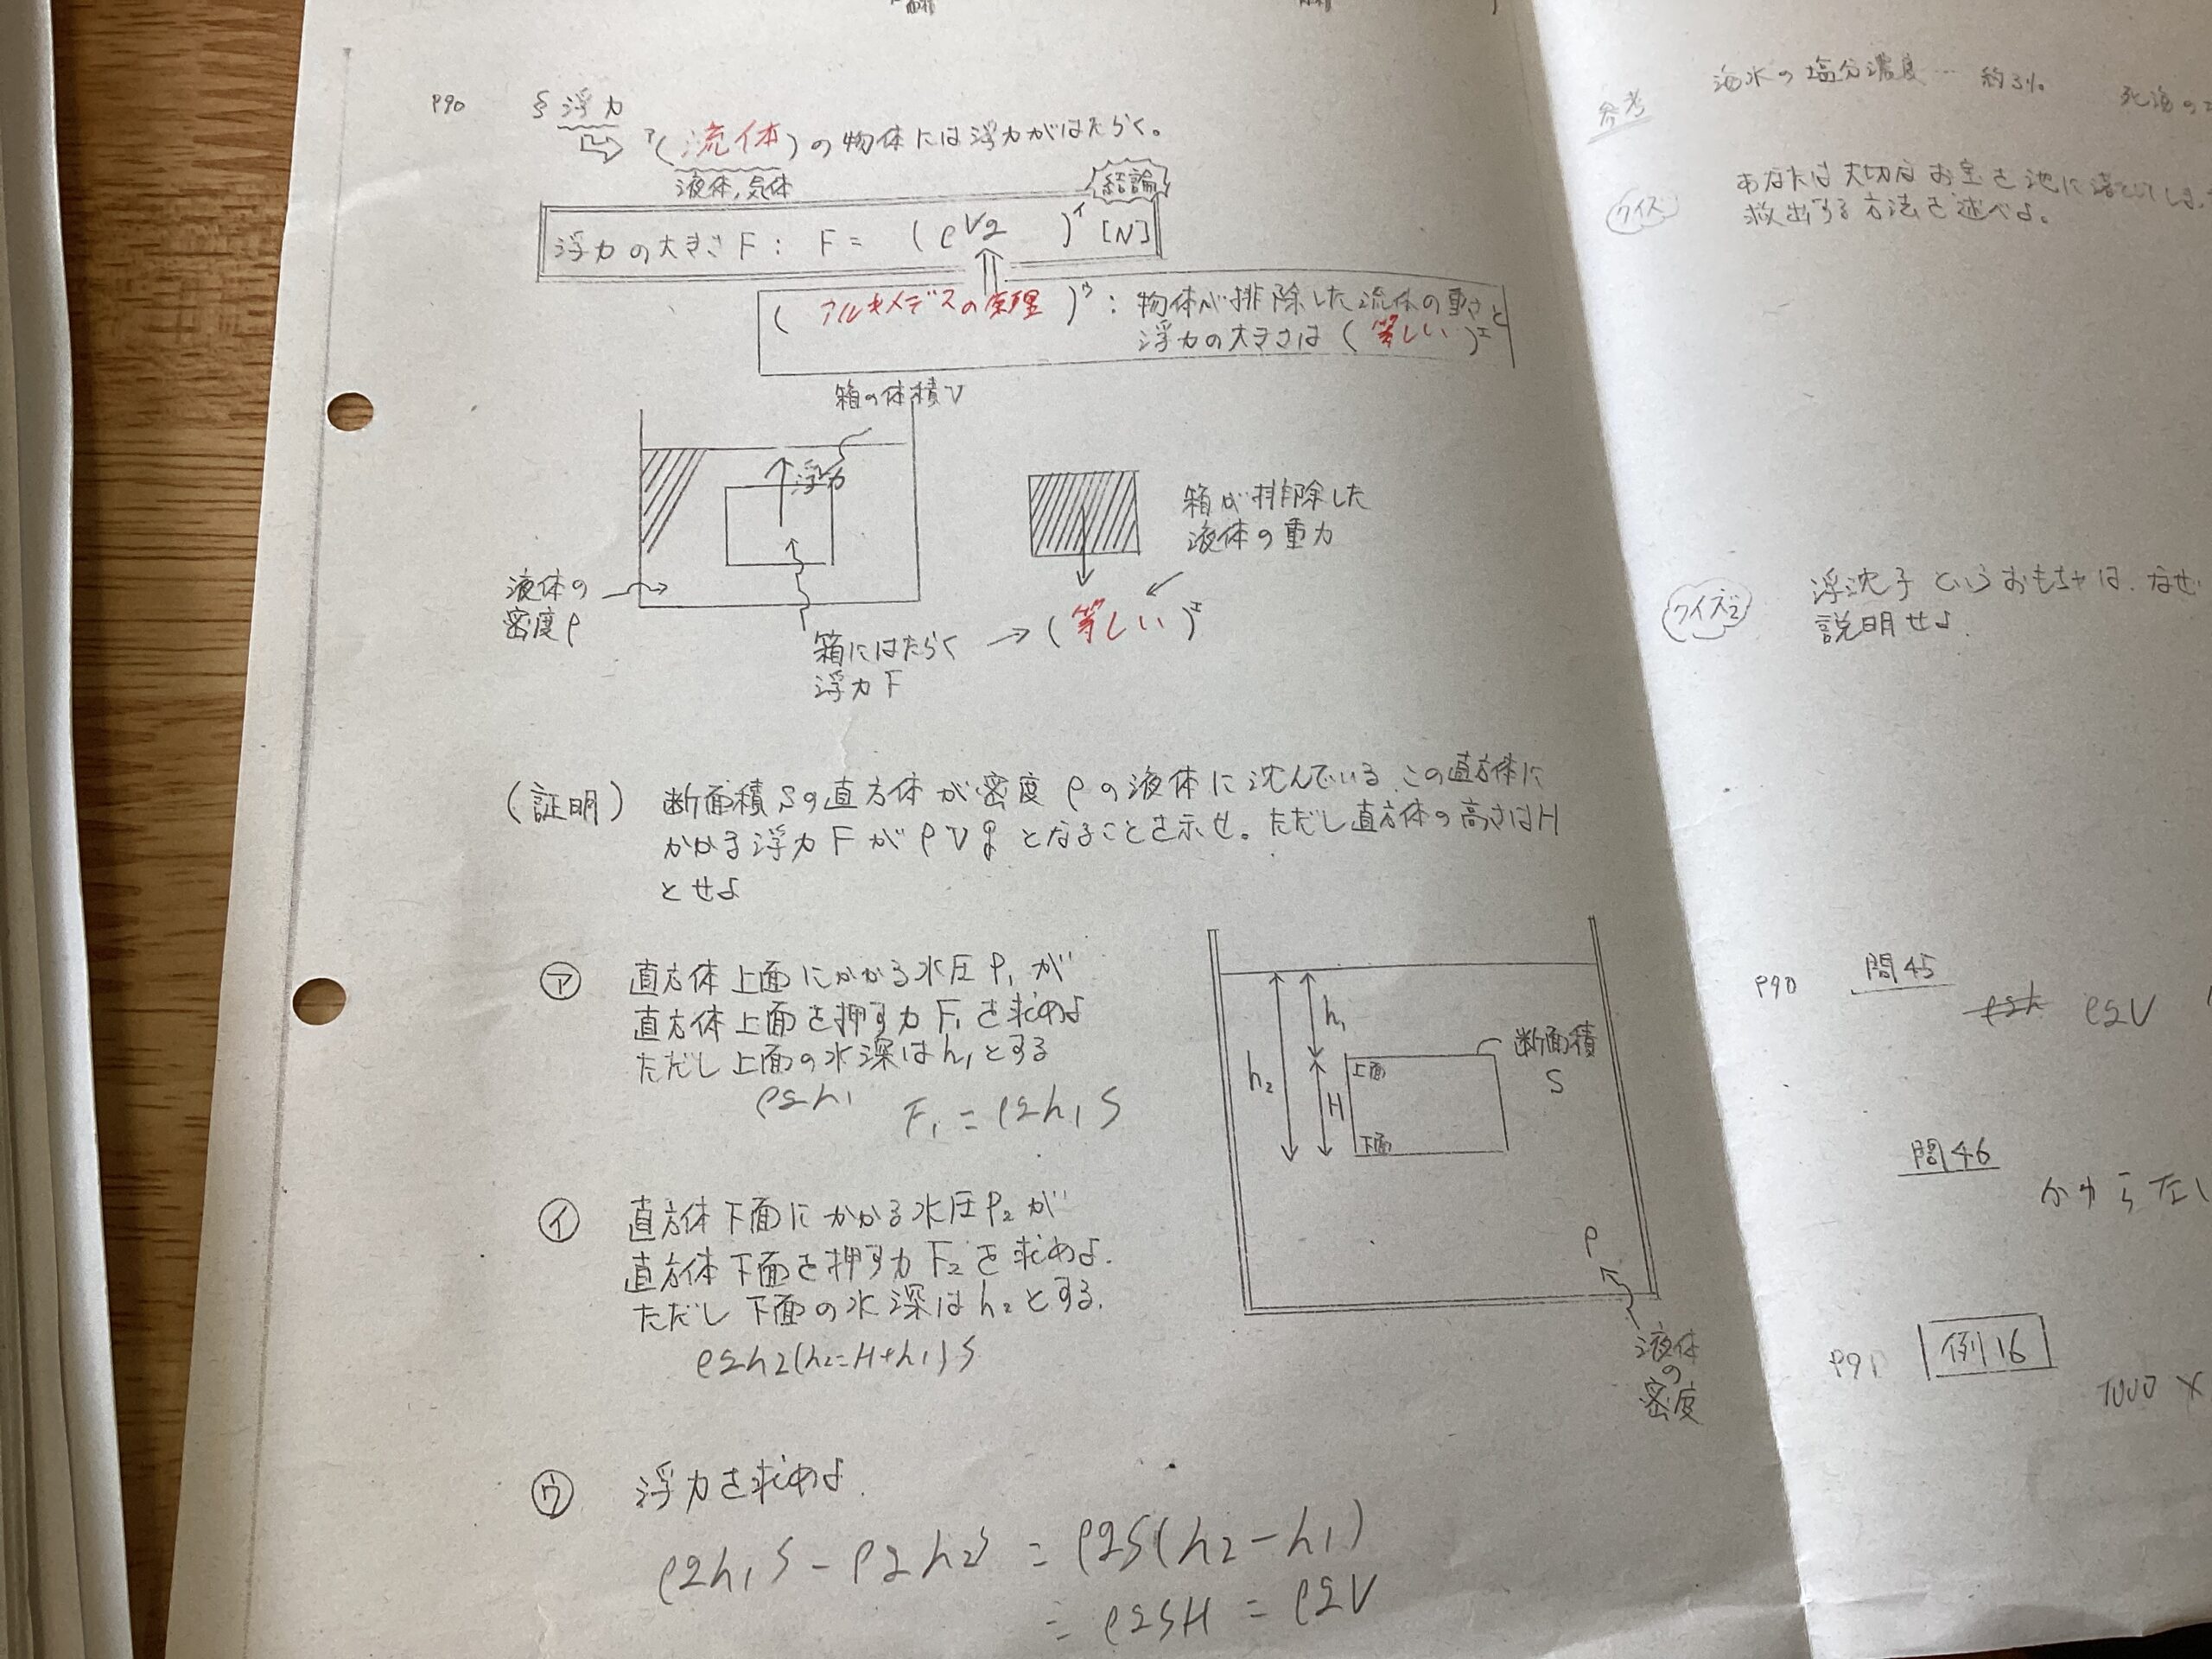 P90
§ 浮力
ア(流体)の物体には浮力がはたらく。
液体,気体
結論
浮力の大きさF: F= (ρVg)イ [N]
(アルキメデスの原理)ウ: 物体が排除した流体の重さと
浮力の大きさは(等しい)エ
箱の体積V
浮力
液体の
密度ρ
箱が排除した
液体の重力
箱にはたらく
浮力F
(等しい)エ
(証明) 断面積Sの直方体が密度ρの液体に沈んでいる、この直方体に
かかる浮力FがρVgとなることを示せ。ただし直方体の高さはH
とせよ
㋐ 直方体上面にかかる水圧P₁が
直方体上面を押す力F₁を求めよ
ただし上面の水深はh₁とする
ρgh₁ F₁=ρgh₁S
㋑ 直方体下面にかかる水圧P₂が
直方体下面を押す力F₂を求めよ.
ただし下面の水深はh₂とする.
ρgh₂(h₂=H+h₁)S
h₁
h₂
H
上面
下面
断面積
S
ρ
液体
の
密度
㋒ 浮力を求めよ.
ρgh₁S-ρgh₂S = ρgS(h₂-h₁)
= ρgSH = ρgV
参考
海水の塩分濃度… 約3%
死海の
クイズ
あなたは大切なお宝を池に落としてしま
救出する方法を述べよ。
クイズ2
浮沈子というおもちゃは、なぜ
説明せよ.
P90 問45
ρgh ρgV
問46
わからない
P91 例16
1000×